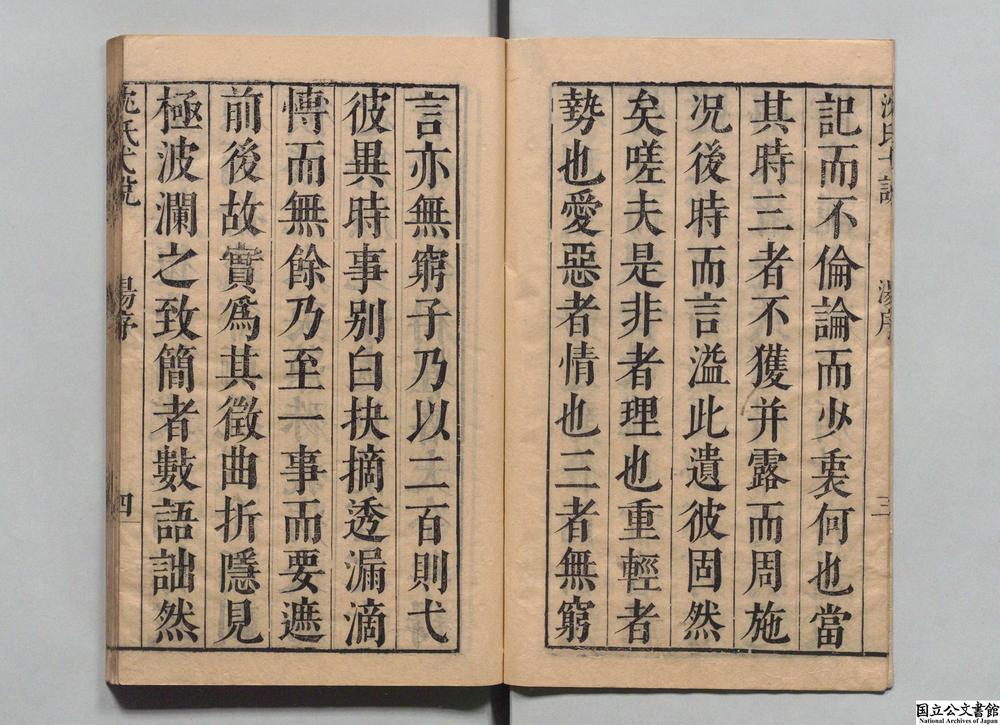 記而不倫論而少衷何也當
其時三者不獲并露而周施
况後時而言溢此遺彼固然
矣嗟夫是非者理也重輕者
勢也愛惡者情也三者無窮
三
言亦無窮子乃以二百則弋
彼異時事别白抉摘透漏滴
慱而無餘乃至一事而要遮
前後故實爲其徵曲折隱見
極波瀾之致簡者數語詘然
沈氏弋説
湯序
四
国立公文書館
National Archives of Japan